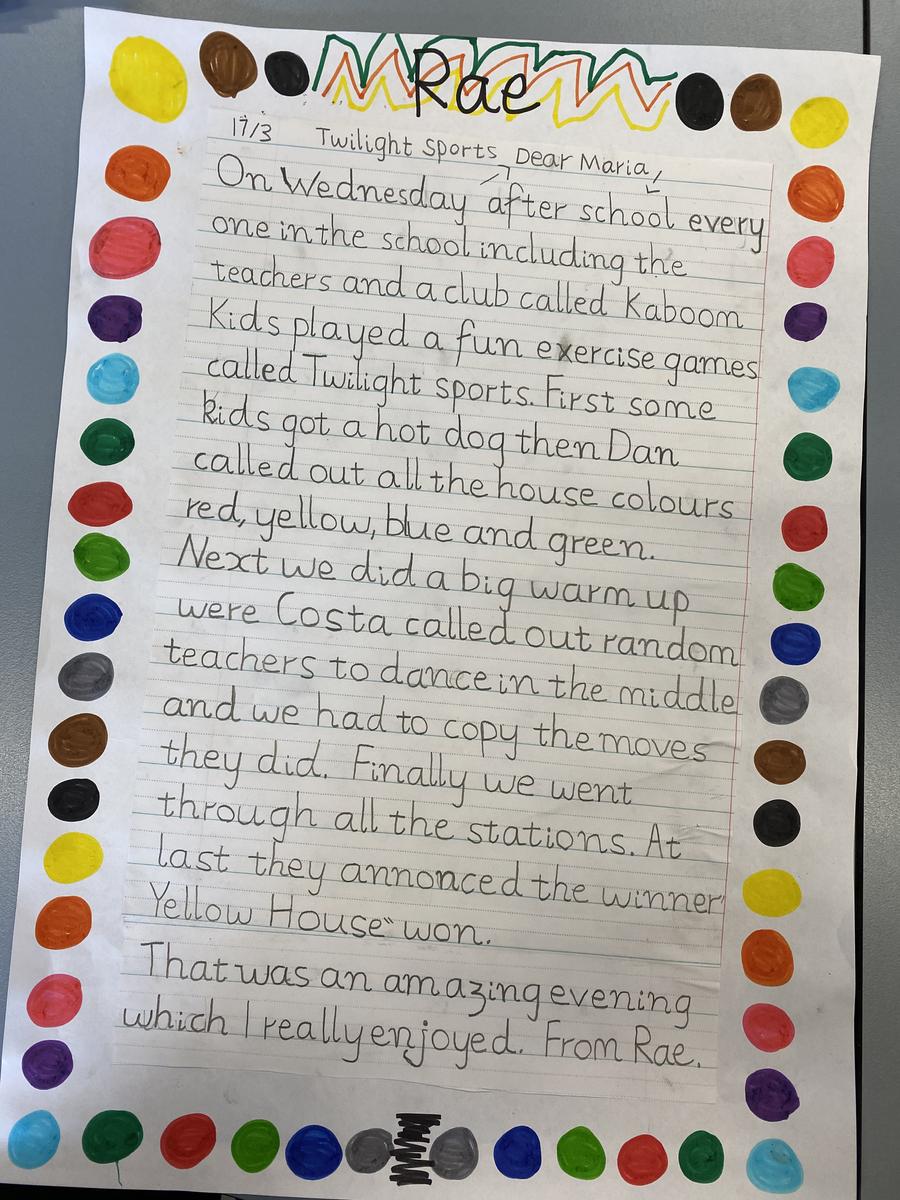 Rae
17/3 Twilight sports, Dear Maria,
On Wednesday after school every
one in the school including the
teachers and a club called Kaboom
Kids played a fun exercise games
called Twilight sports. First some
kids got a hot dog then Dan
called out all the house colours
red, yellow, blue and green.
Next we did a big warm up
were Costa called out random
teachers to dance in the middle
and we had to copy the moves
they did. Finally we went
through all the stations. At
last they annonced the winner
Yellow House" won.
That was an amazing evening
which I really enjoyed. From Rae.